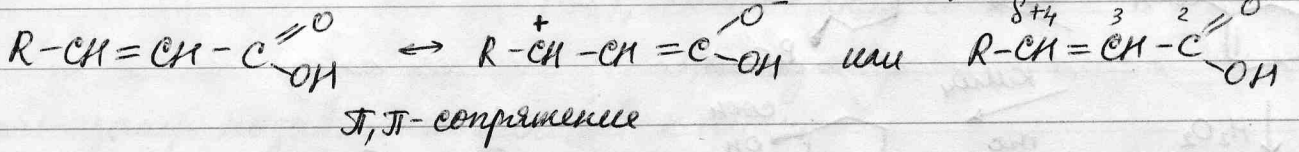 R-CH=CH-C(=O)-OH ↔ R-CH(+)-CH=C(O⁻)-OH или R-CH(δ+4)=CH(3)-C(2)(=O)-OH
π,π-сопряжение